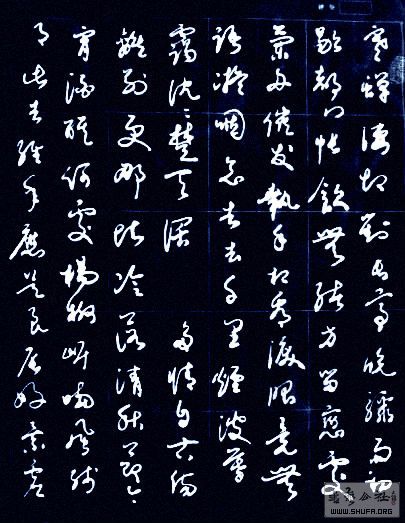 寒蟬淒切對長亭晚驟雨初
歇都門帳飲無緒方留戀處
蘭舟催發執手相看淚眼竟無
語凝咽念去去千里煙波暮
靄沈沈楚天闊 多情自古傷
離別更那堪冷落清秋節今
宵酒醒何處楊柳岸曉風殘
月此去經年應是良辰好景虛
书法公社
WWW.SHUFA.ORG